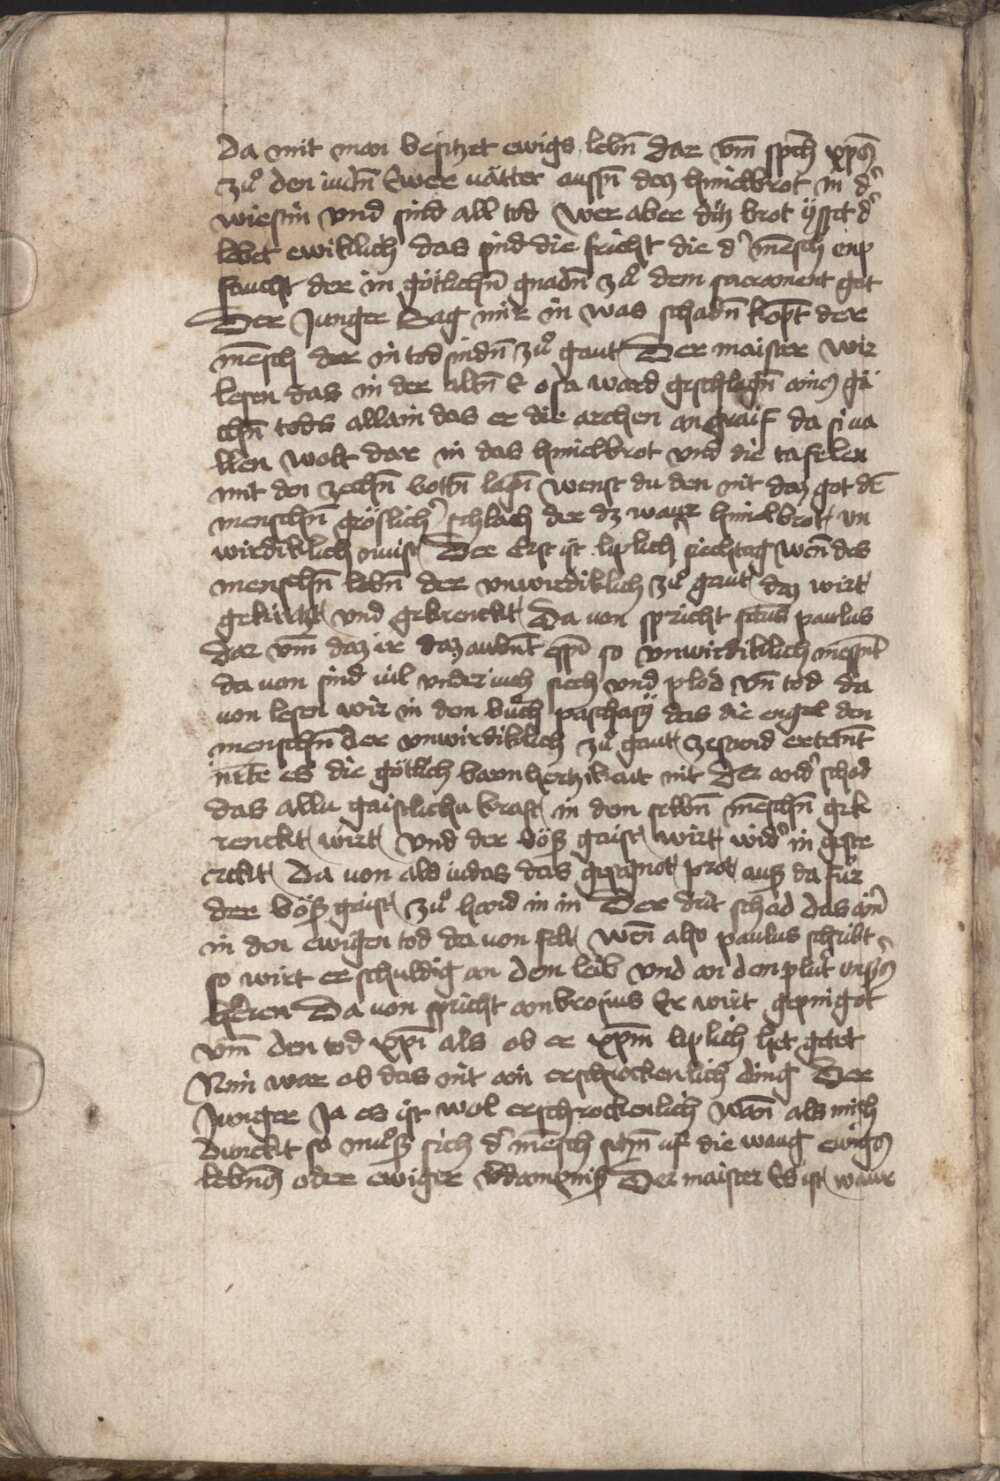 Da mit man besitzet ewigs lebn̄ dar vm̄ spch̄ xpūs
zuͦ den iudn̄ Ewer vätter aussn̄ dez himelbrot in d'
wiestin vnd sind all tod wer aber ditz brot ysset d'
lebet ewiklich das sind die frücht die d' mēsch enp
faucht der in götlichn̄ gnadn̄ zuͦ dem sacrament get
Der Junger Sag mir in was schadn̄ kopt̄ der
mēsch der in tod sündn̄ zuͦ gaut Der maister wir
lesen das in der altn̄ E osa ward geschlagn̄ ains gä
chn̄ tods allain das er die archen an graif da si va
llen wolt dar in das himelbrot vnd die tafelen
mit den zechn̄ botn̄ lagn̄ wenst du den nit daz got dē
menschn̄ gröslich' schlach der dz waur himelbrot vn
wirdiklich nuist Der Erst ist liplich siechtag wen̄ des
menschn̄ lebn̄ der vnwirdiklich zuͦ gaut daz wirt
gekürtzt vnd gekrenckt Da von spricht sctūs paulus
dar vm̄ daz ir daz aubnt̄ essn̄ so vnwirdiklich niessnt̄
da von sind vil vnder iuch siech vnd plöd vn̄ tod da
von lesen wir in dem buͦch paschasy das die engel den
menschn̄ der vnwirdiklich zuͦ gaut zestund ertotn̄t
liess es die götlich barmhertzikait nit Der and' schad
das allu gaistlichu kraft in den selbn̄ mēschn̄ gek
renckt wirt vnd der bös gaist wirt wid' in geste
rckt Da von als iudas das gesegnot prot auss da fuͦr
der böss gaist zuͦ hand in in Der drit schad das ain̄
in den ewigen tod da von felt wen̄ also paulus schribt
so wirt er schuldig an dem leib vnd an dem pluͦt vnss's
heren Da von spricht ambrosius Er wirt gepinigot
vm̄ den tod xpī als ob er xpm̄ liplich het getöt
Nim war ob das nit ain erschrockenlich ding Der
Junger Ja es ist wol erschrockenlich wan̄ als mich
dunckt so muͦss sich d' mēsch setzn̄ uf die waug ewigs
lebns oder ewiger v'damnniss Der maister Es ist waur